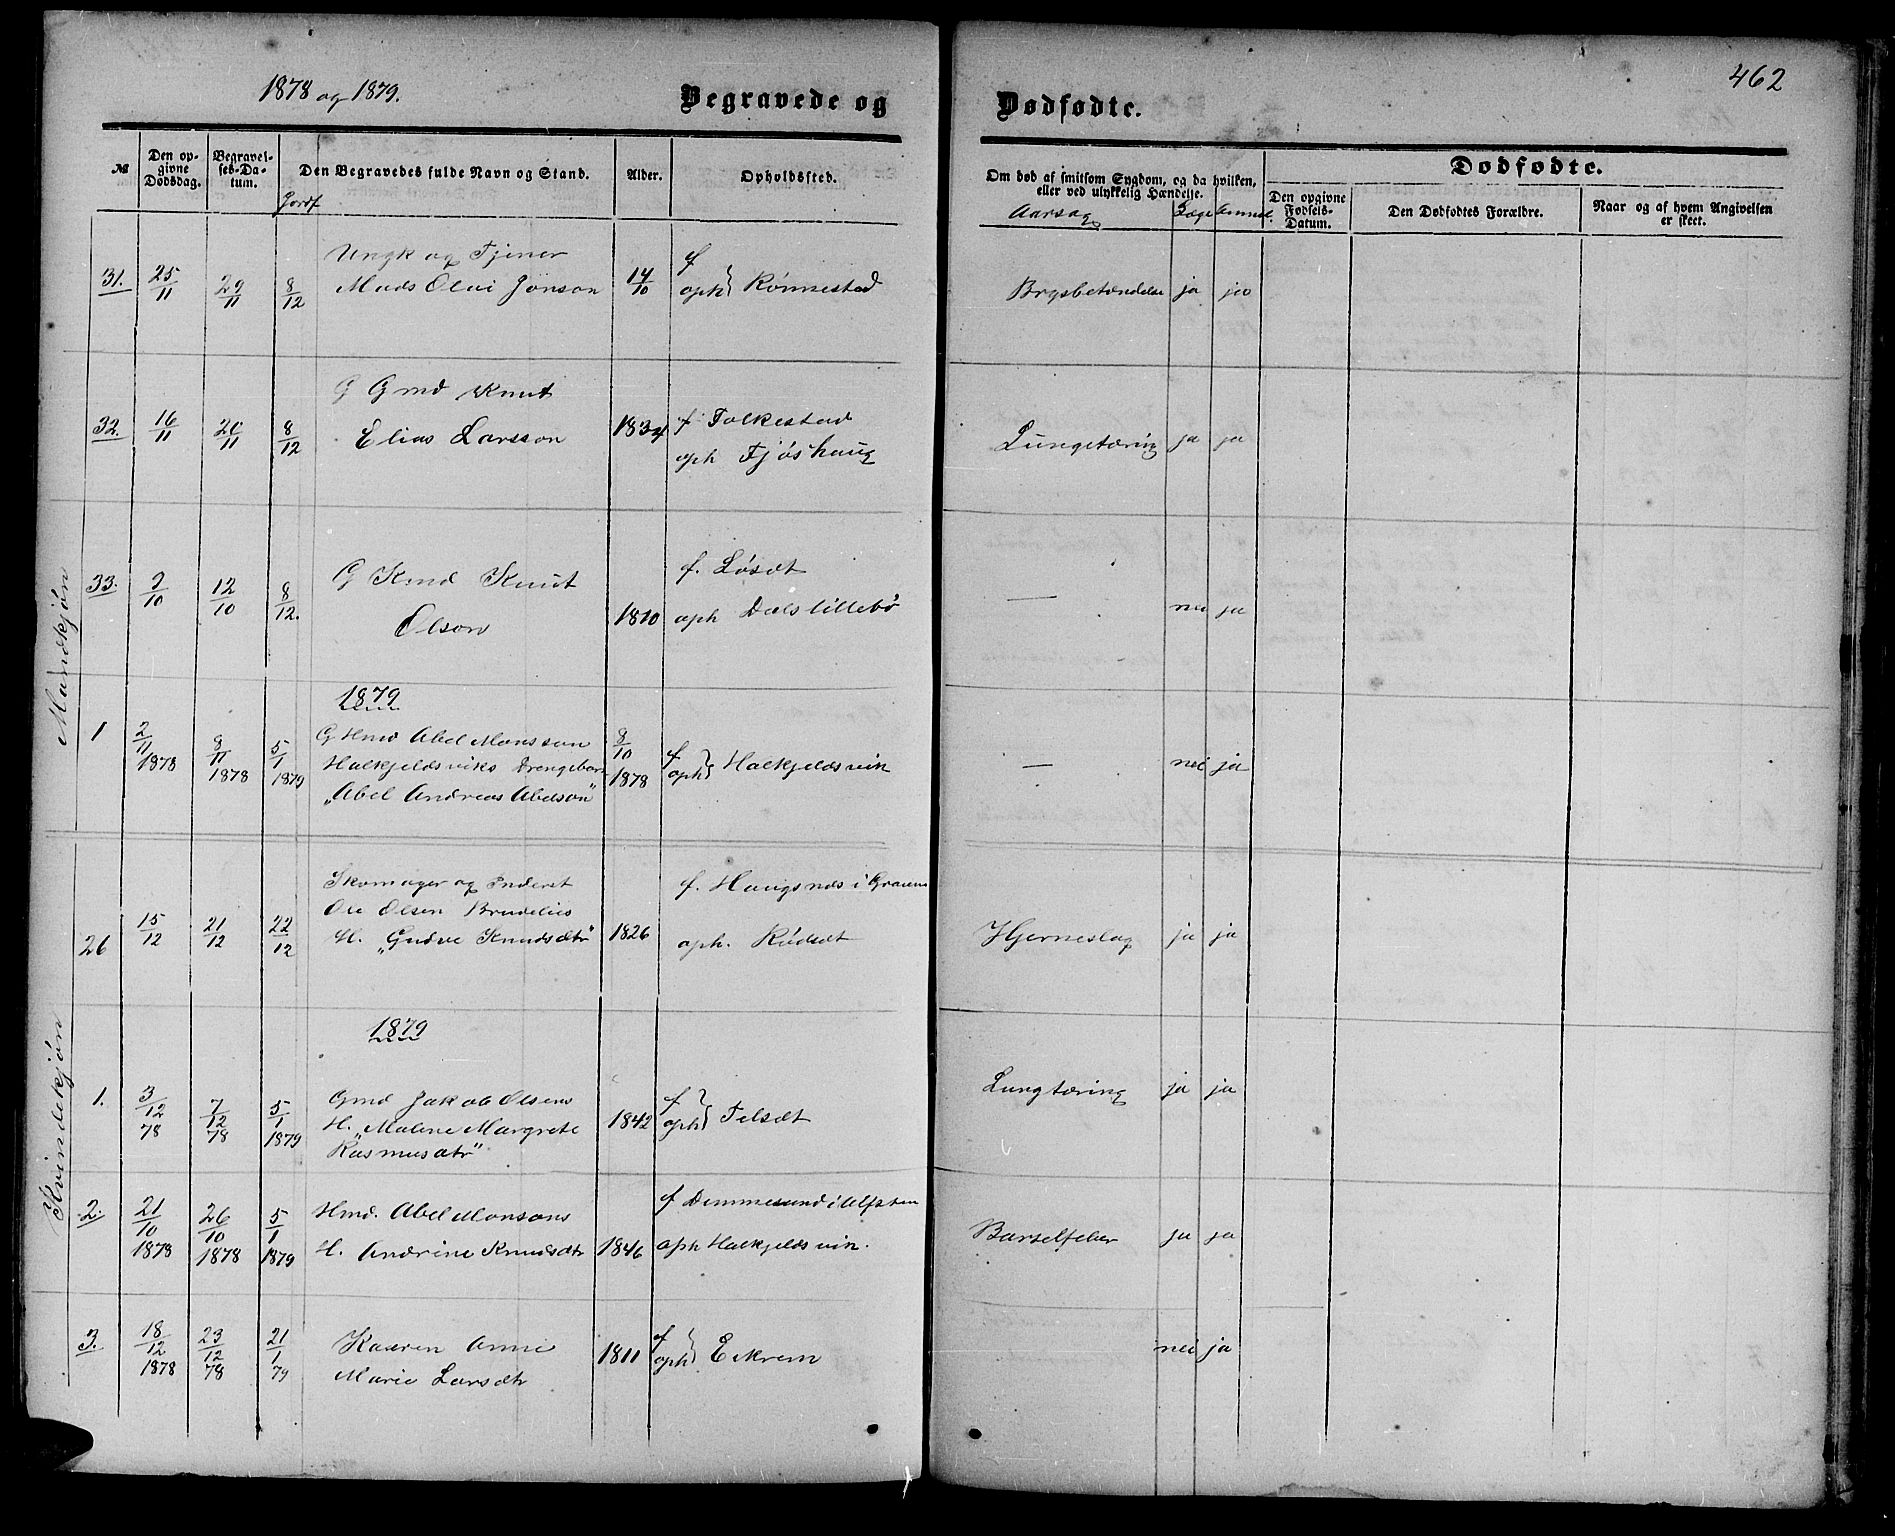 1878 og 1879.
Begravede og
Dødfødte.
462
№
Den opgivne Dødsdag.
Begravelses-Datum.
Jordf
Den Begravedes fulde Navn og Stand.
Alder.
Opholdssted.
Om død af smitsom Sygdom, og da hvilken, eller ved ulykkelig Hændelse.
Aarsag
Læge
Anmel.
Dødfødte.
Den opgivne Fødsels-Datum.
Den Dødfødtes Forældre.
Naar og af hvem Angivelsen er skeet.
Mandkjøn
31. 25/11 29/11 8/12 Ungk og Tjener
Mads Olai Jonson 14/10 f oph } Rønnestad Brystbetændelse ja ja
32. 16/11 20/11 8/12 G Gmd Knut
Elias Larsson 1834 f Folkestad
oph Fjøshaug Lungetæring ja ja
33. 2/10 12/10 8/12. G Kmd Knut
Olson 1810 f. Løsæt
oph Dalslillebø — nei ja
1879
1 2/11 1878 8/11 1878 5/1 1879 G Hmd Abel Monsson
Halkjeldsviks Drengebarn
"Abel Andreas Abelson" 8/10 1878 f oph } Halkjeldsvik — nei ja
Kvindekjøn
26 15/12 21/12 22/12 Skomager og Inderst
Ole Olsen Brudelies
H. "Gudve Knudsdtr" 1826 f. Haugsnæs i Graven
oph. Rødsæt Hjerneslag ja ja
1879
1. 3/12 78 7/12 78 5/1 1879 Gmd Jakob Olsens
H. "Malene Margrete
Rasmusdtr" 1842 f oph } Felsæt Lungtæring ja ja
2. 21/10 1878 26/10 1878 5/1 1879 Hmd. Abel Monsons
H. Andrine Knudsdtr 1846 f Dimmesund i Ulfsten
oph Halkjeldsvik. Barselfeber ja ja
3. 18/12 1878 23/12 78 21/1 79 Kaaren Anne
Marie Larsdtr 1811 f oph } Eikrem nei ja